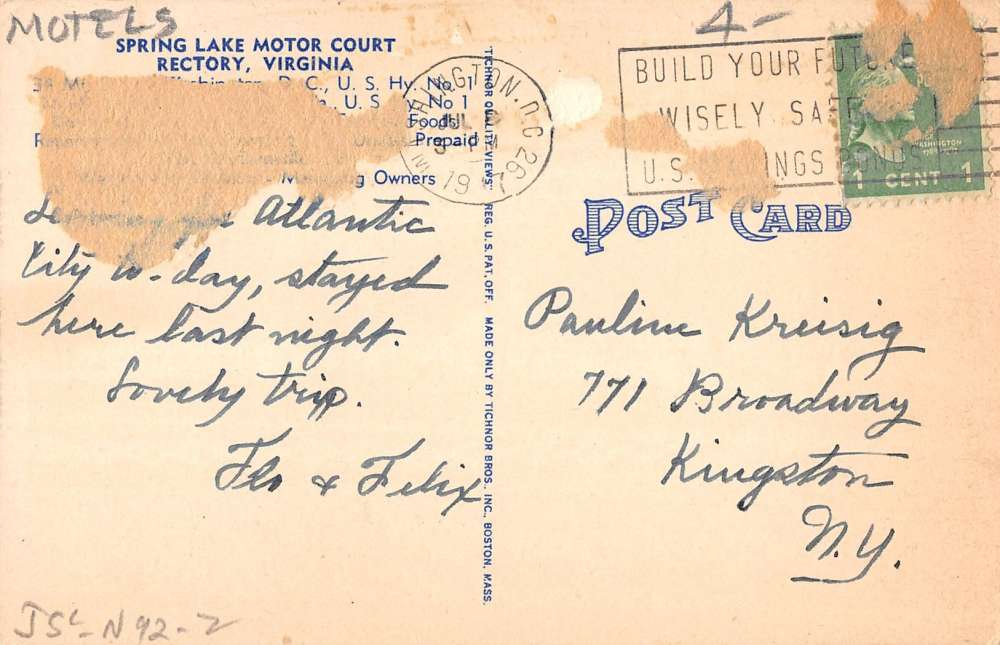 MOTELS
4-
SPRING LAKE MOTOR COURT
RECTORY, VIRGINIA
D. C., U. S. Hy. No. 1
U. S. No 1
Foods
Prepaid
Owners
Atlantic
City to-day, stayed
here last night.
Lovely trip.
Flo & Felix
JSL-N92-2
TICHNOR QUALITY VIEWS" REG. U. S. PAT. OFF. MADE ONLY BY TICHNOR BROS., INC., BOSTON, MASS.
WASHINGTON, D.C. 26
JUL
PM
19
BUILD YOUR FUTURE
WISELY SAFELY
U.S. SAVINGS BONDS
WASHINGTON
1 CENT 1
POST CARD
Pauline Kreisig
771 Broadway
Kingston
N.Y.